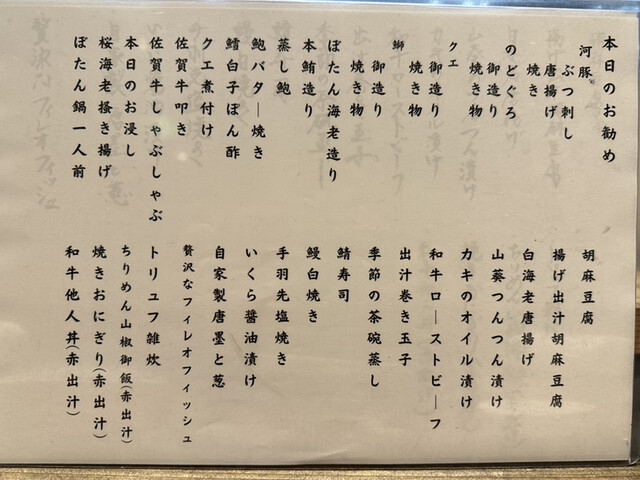 本日のお勧め
河豚 ぶつ刺し
唐揚げ
焼き
のどぐろ
御造り
焼き物
クエ
御造り
焼き物
鰤
御造り
焼き物
ぼたん海老造り
本鮪造り
蒸し鮑
鮑バター焼き
鱈白子ぽん酢
クエ煮付け
佐賀牛叩き
佐賀牛しゃぶしゃぶ
本日のお浸し
桜海老掻き揚げ
ぼたん鍋一人前
胡麻豆腐
揚げ出汁胡麻豆腐
白海老唐揚げ
山葵つんつん漬け
カキのオイル漬け
和牛ローストビーフ
出汁巻き玉子
季節の茶碗蒸し
鯖寿司
鰻白焼き
手羽先塩焼き
いくら醤油漬け
自家製唐墨と葱
贅沢なフィレオフィッシュ
トリュフ雑炊
ちりめん山椒御飯(赤出汁)
焼きおにぎり(赤出汁)
和牛他人丼(赤出汁)